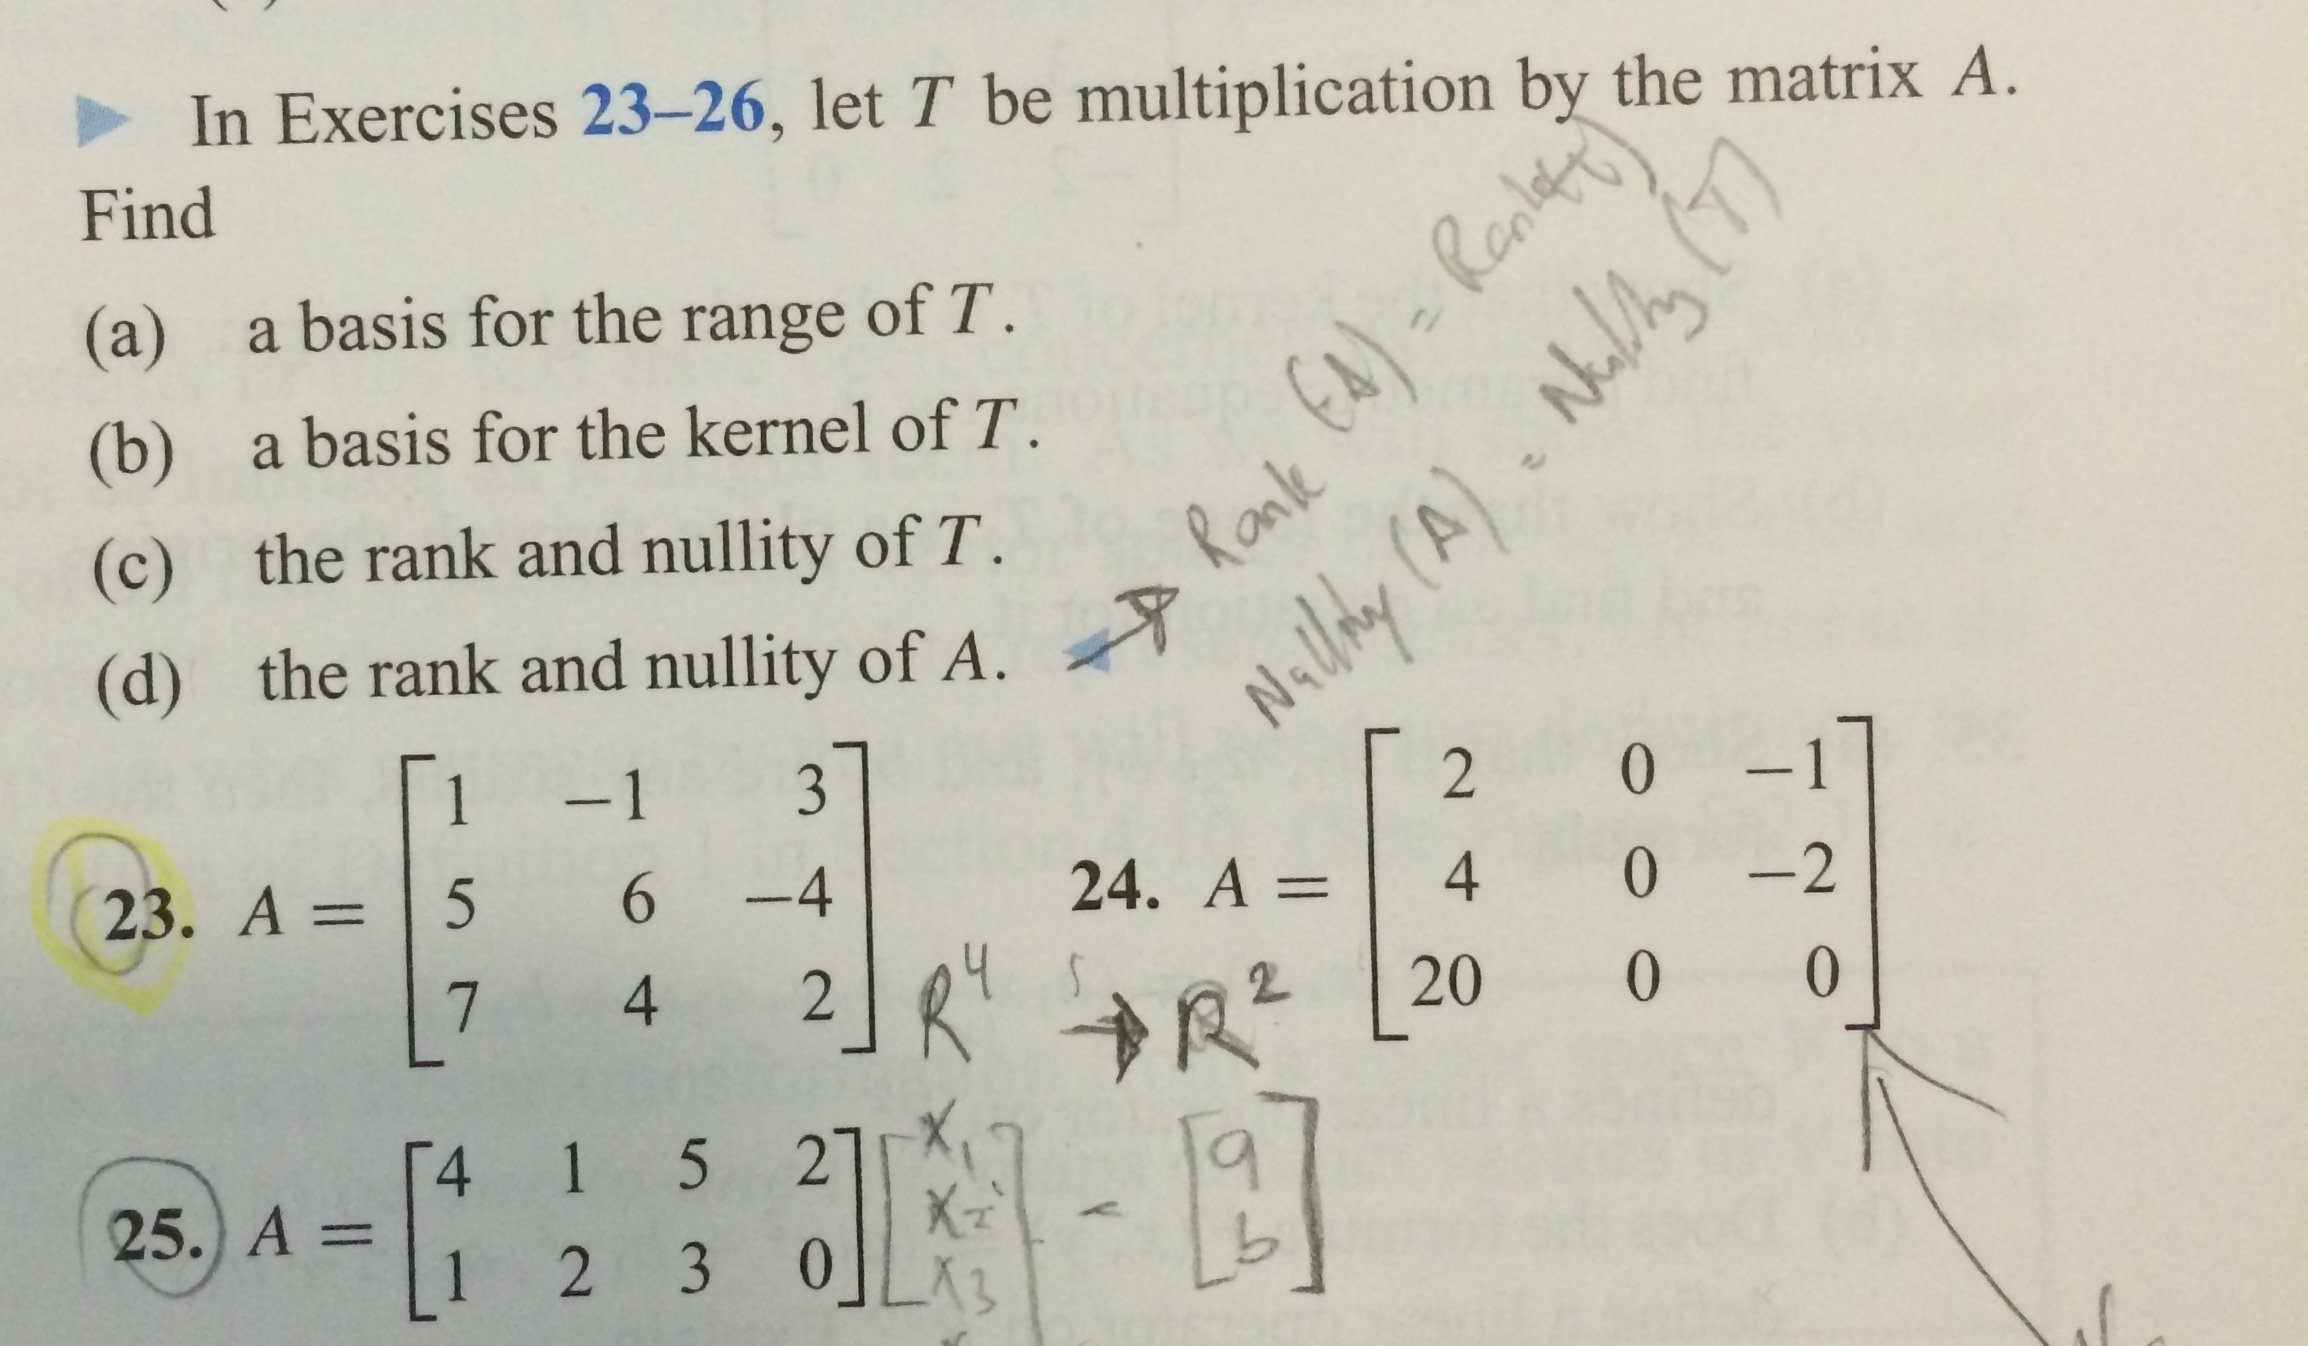 In Exercises 23–26, let T be multiplication by the matrix A.
Find
(a) a basis for the range of T.
(b) a basis for the kernel of T.
(c) the rank and nullity of T.
(d) the rank and nullity of A.
Rank (A) = Rank(T)
Nullity (A) = Nullity (T)
23. A = [1 −1 3
5 6 −4
7 4 2]
24. A = [2 0 −1
4 0 −2
20 0 0]
R⁴ → R²
25. A = [4 1 5 2
1 2 3 0]
[x₁
x₂
x₃
= [a
b]